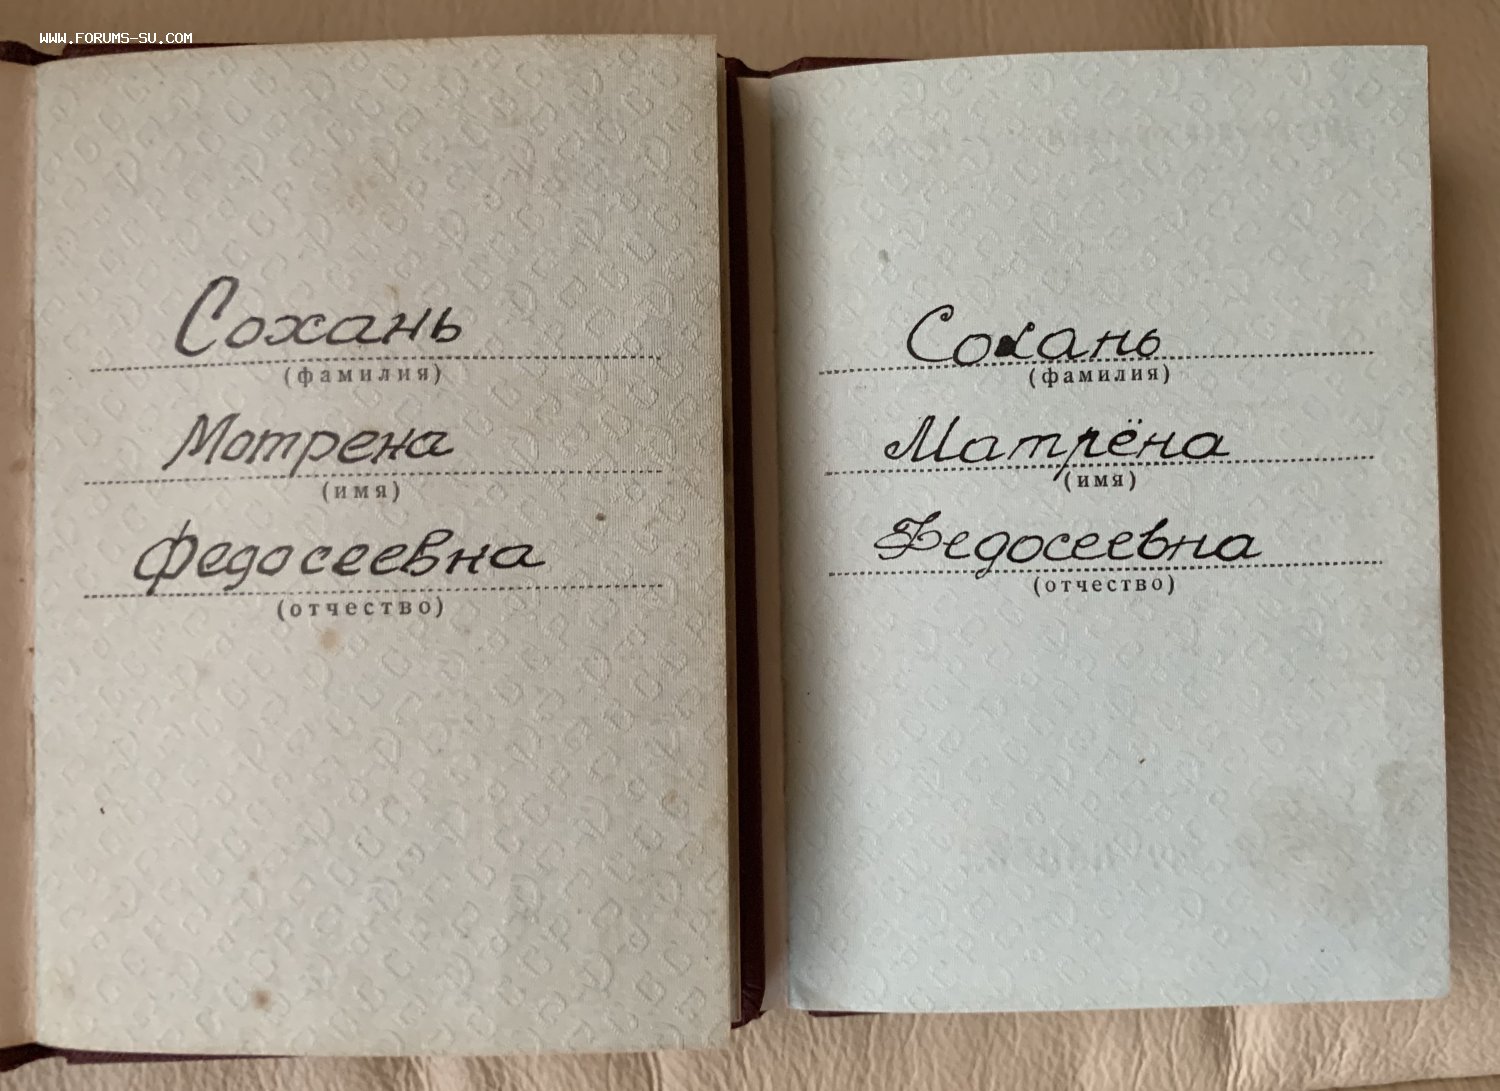 WWW.FORUMS-SU.COM
Сохань
(фамилия)
Мотрена
(имя)
Федосеевна
(отчество)
Сохань
(фамилия)
Матрёна
(имя)
Федосеевна
(отчество)